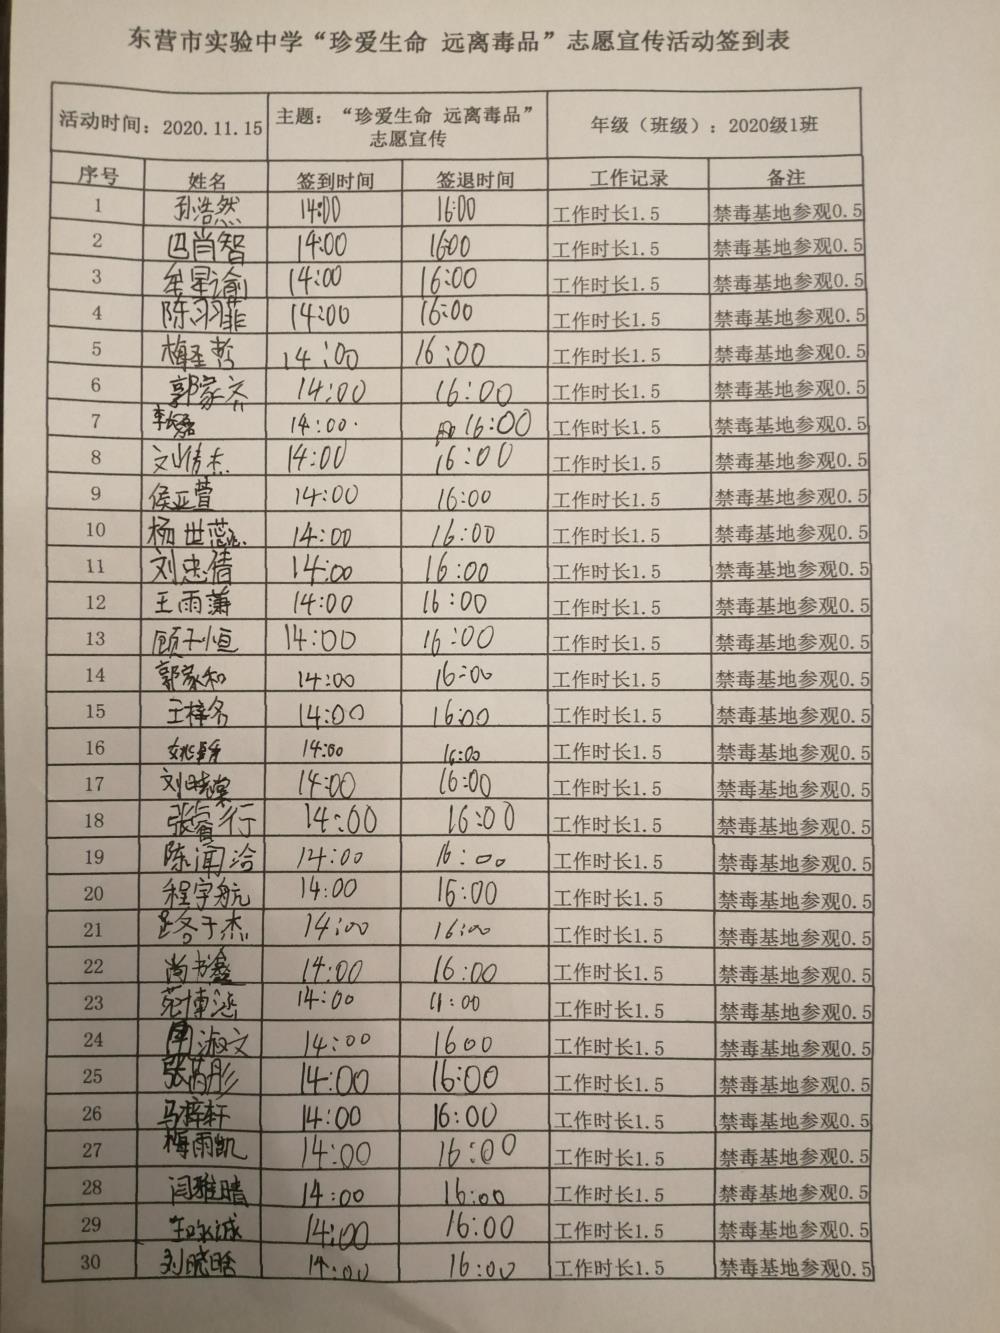 东营市实验中学“珍爱生命 远离毒品”志愿宣传活动签到表
活动时间：2020.11.15 主题：“珍爱生命 远离毒品”志愿宣传 年级（班级）：2020级1班
序号 姓名 签到时间 签退时间 工作记录 备注
1 孙浩然 14:00 16:00 工作时长1.5 禁毒基地参观0.5
2 14:00 1600 工作时长1.5 禁毒基地参观0.5
3 牟星渝 14:00 16:00 工作时长1.5 禁毒基地参观0.5
4 陈羽菲 14:00 16:00 工作时长1.5 禁毒基地参观0.5
5 梅圣哲 14:00 16:00 工作时长1.5 禁毒基地参观0.5
6 郭家齐 14:00 16:00 工作时长1.5 禁毒基地参观0.5
7 14:00 16:00 工作时长1.5 禁毒基地参观0.5
8 刘倩杰 14:00 16:00 工作时长1.5 禁毒基地参观0.5
9 侯亚萱 14:00 16:00 工作时长1.5 禁毒基地参观0.5
10 杨世蕊 14:00 16:00 工作时长1.5 禁毒基地参观0.5
11 刘忠倩 14:00 16:00 工作时长1.5 禁毒基地参观0.5
12 王雨 14:00 16:00 工作时长1.5 禁毒基地参观0.5
13 顾子恒 14:00 16:00 工作时长1.5 禁毒基地参观0.5
14 郭家和 14:00 16:00 工作时长1.5 禁毒基地参观0.5
15 王梓名 14:00 16:00 工作时长1.5 禁毒基地参观0.5
16 14:00 16:00 工作时长1.5 禁毒基地参观0.5
17 刘晓棠 14:00 16:00 工作时长1.5 禁毒基地参观0.5
18 张睿行 14:00 16:00 工作时长1.5 禁毒基地参观0.5
19 陈闻洽 14:00 16:00 工作时长1.5 禁毒基地参观0.5
20 程宇航 14:00 16:00 工作时长1.5 禁毒基地参观0.5
21 路子杰 14:00 16:00 工作时长1.5 禁毒基地参观0.5
22 尚书鑫 14:00 16:00 工作时长1.5 禁毒基地参观0.5
23 苑博 14:00 16:00 工作时长1.5 禁毒基地参观0.5
24 周淑文 14:00 1600 工作时长1.5 禁毒基地参观0.5
25 张芮彤 14:00 16:00 工作时长1.5 禁毒基地参观0.5
26 马梓轩 14:00 16:00 工作时长1.5 禁毒基地参观0.5
27 梅雨凯 14:00 16:00 工作时长1.5 禁毒基地参观0.5
28 闫雅晴 14:00 16:00 工作时长1.5 禁毒基地参观0.5
29 王咏诚 14:00 16:00 工作时长1.5 禁毒基地参观0.5
30 刘晓晗 14:00 16:00 工作时长1.5 禁毒基地参观0.5